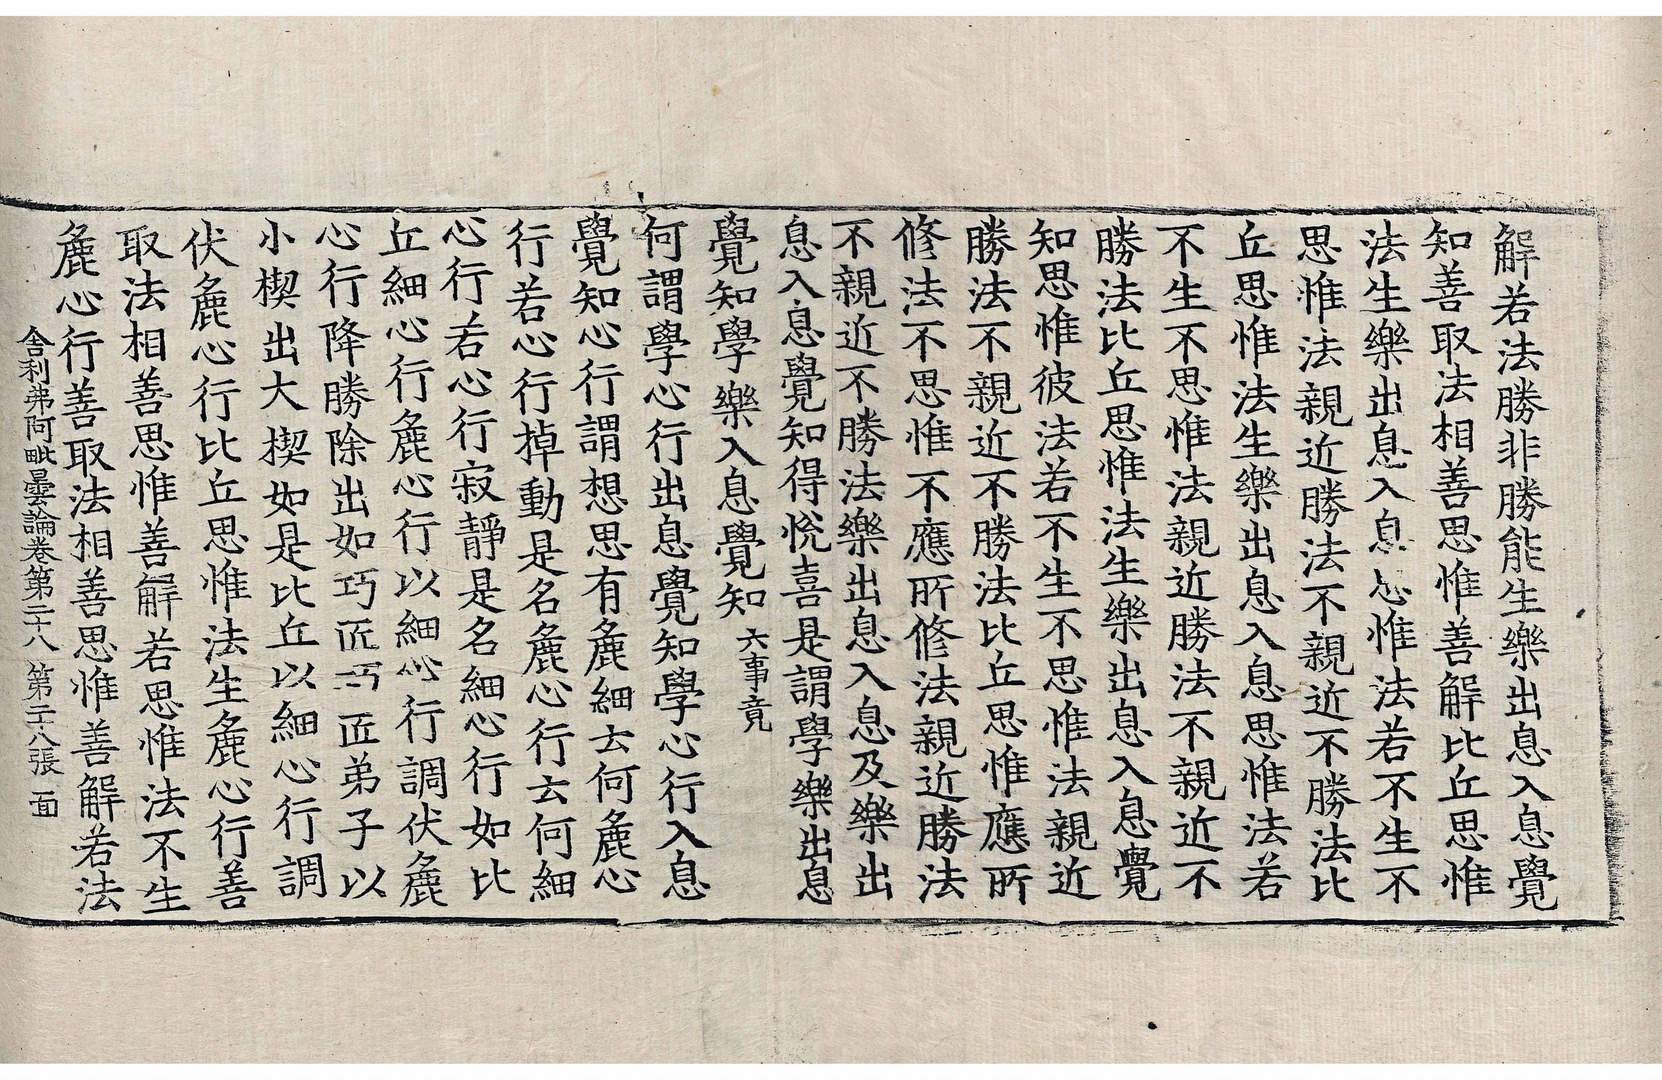 解若法勝非勝能生樂出息入息覺
知善取法相善思惟善解比丘思惟
法生樂出息入息思惟法若不生不
思惟法親近勝法不親近不勝法比
丘思惟法生樂出息入息思惟法若
不生不思惟法親近勝法不親近不
勝法比丘思惟法生樂出息入息覺
知思惟彼法若不生不思惟法親近
勝法不親近不勝法比丘思惟應所
修法不思惟不應所修法親近勝法
不親近不勝法樂出息入息及樂出
息入息覺知得悅喜是謂學樂出息
覺知學樂入息覺知 六事竟
何謂學心行出息覺知學心行入息
覺知心行謂想思有麁細云何麁心
行若心行掉動是名麁心行云何細
心行若心行寂靜是名細心行如比
丘細心行麁心行以細心行調伏麁
心行降勝除出如巧匠巧匠弟子以
小楔出大楔如是比丘以細心行調
伏麁心行比丘思惟法生麁心行善
取法相善思惟善解若思惟法不生
麁心行善取法相善思惟善解若法
舍利弗阿毗曇論卷第二十八 第二十八張 面